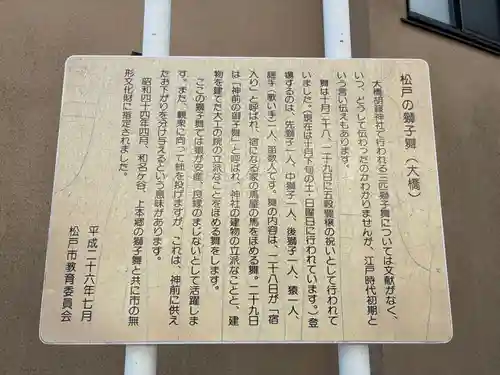 松戸の獅子舞（大橋）
大橋胡籙神社で行われる三匹獅子舞については文献がなく、
いつ、どうして伝わったのかわかりませんが、江戸時代初期と
いう言い伝えもあります。
舞は十月二十八、二十九日に五穀豊穣の祝いとして行われて
いました。（現在は十月下旬の土・日曜日に行われています。）登
場するのは、先獅子一人、中獅子一人、後獅子一人、猿一人、
謡手（歌い手）二人、笛数人です。舞の内容は、二十八日が「宿
入り」と呼ばれ、宿になる家の馬屋の馬をほめる舞。二十九日
は「神前の御子舞」と呼ばれ、神社の建物の立派なことと、建
物を建てた大工の腕の立派なことをほめる舞をします。
ここの獅子舞では猿が安産、良縁のまじないとして活躍しま
す。また、観衆に向って餅を投げますが、これは、神前に供え
たお下がりを分け与えるという意味があります。
昭和四十四年四月、和名ケ谷、上本郷の獅子舞と共に市の無
形文化財に指定されました。
平成二十六年七月
松戸市教育委員会